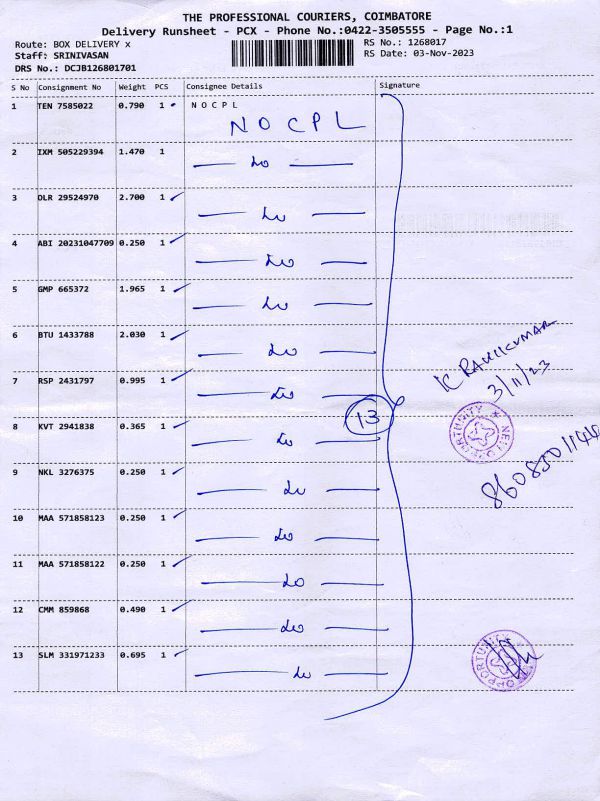 THE PROFESSIONAL COURIERS, COIMBATORE
Delivery Runsheet - PCX - Phone No.:0422-3505555 - Page No.:1
Route: BOX DELIVERY x
RS No.: 1268017
Staff: SRINIVASAN
RS Date: 03-Nov-2023
DRS No.: DCJB126801701
S No Consignment No Weight PCS Consignee Details Signature
1 TEN 7585022 0.790 1 N O C P L
NOCPL
2 IXM 505229394 1.470 1
3 DLR 29524970 2.700 1
4 ABI 20231047709 0.250 1
5 GMP 665372 1.965 1
6 BTU 1433788 2.030 1
K RAVIKUMAR
3/11/23
7 RSP 2431797 0.995 1
13
8 KVT 2941838 0.365 1
9 NKL 3276375 0.250 1
10 MAA 571858123 0.250 1
11 MAA 571858122 0.250 1
12 CMM 859868 0.490 1
13 SLM 331971233 0.695 1
OPPORTUNITY